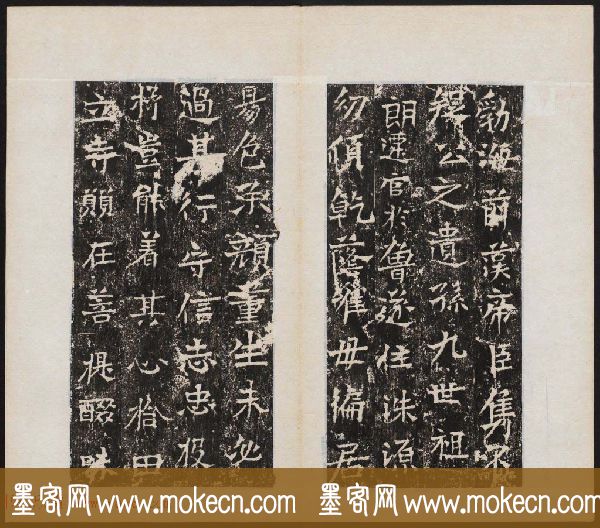 勃海莭漢帝臣雋不
疑公之遺孫九世祖
朗遷官於魯遂住洙源
幼傾乾蔭唯母偏居
易色承顔董生未必
過其行守信志忠投
杼豈能着其心捨田
立寺願在善提醊味
墨客网 www.mokecn.com
墨客网 www.mokecn.com